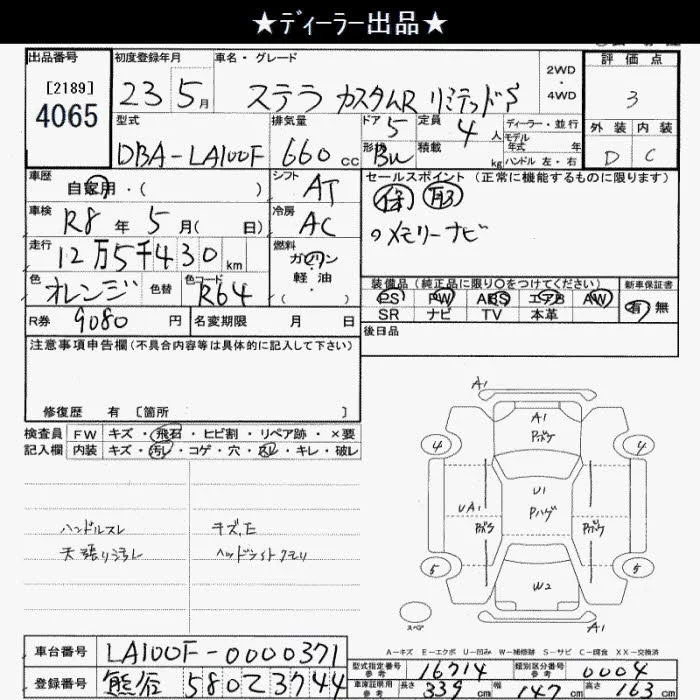 ★ディーラー出品★
出品番号 初度登録年月 車名・グレード 2WD・4WD 評価点
[2189]
4065
23 5月 ステラ カスタムR リミテッドS 3
型式 排気量 ドア 定員 ディーラー・並行 外装 内装
DBA-LA100F 660cc 5 4人 モデル年式 年式 D C
形状 積載 kg ハンドル 左・右
車歴 シフト セールスポイント(正常に機能するものに限ります)
自家用・( ) AT
車検 冷房
R8年5月( 日) AC
・メモリーナビ
走行 燃料
12万5千430km ガソリン
軽・油
( )
色 色替 色コード
オレンジ R64
装備品(純正品に限り○をつけてください) 新車保証書
PS PW ABS エアB AW 有 無
SR ナビ TV 本革
R券 9080円 名変期限 月 日
後日品
注意事項申告欄(不具合内容等は具体的に記入して下さい)
修復歴 有 〔箇所 〕
検査員 FW キズ・飛石・ヒビ割・リペア跡・×要
記入欄 内装 キズ・汚レ・コゲ・穴・スレ・キレ・破レ
ハンドルスレ キズ,E
天張り汚レ ヘッドライトクモリ
A1
A1
Pボケ
4 4
U1
UA1 Pハゲ
Pボケ Pボケ
5 5
W2
スペア
A1
A-キズ E-エクボ U-凹み W-補修跡 S-サビ C-腐食 XX-交換済
車台番号 LA100F-0000371
型式指定番号 参考 16714 類別区分番号 参考 0004
登録番号 熊谷 580 23744
車庫証明用 参考 長さ 339cm 幅 147cm 高さ 163cm